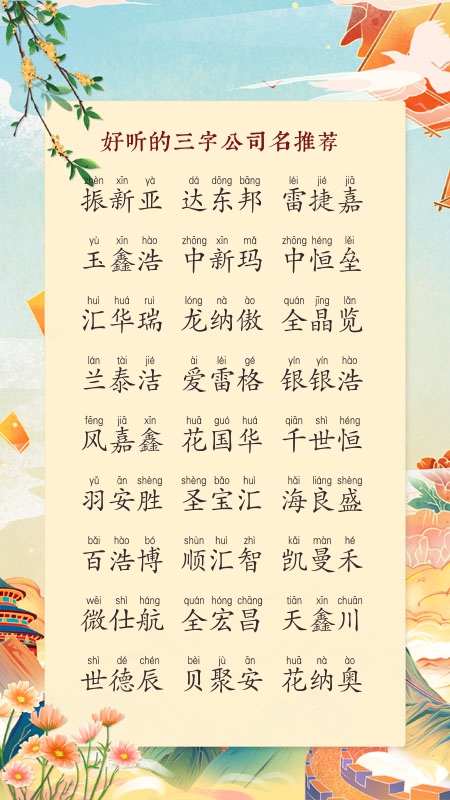 好听的三字公司名推荐
zhèn xīn yà dá dōng bāng léi jié jiā
振新亚 达东邦 雷捷嘉
yù xīn hào zhōng xīn mǎ zhōng héng lěi
玉鑫浩 中新玛 中恒垒
huì huá ruì lóng nà ào quán jīng lǎn
汇华瑞 龙纳傲 全晶览
lán tài jié ài léi gé yín yín hào
兰泰洁 爱雷格 银银浩
fēng jiā xīn huā guó huá qiān shì héng
风嘉鑫 花国华 千世恒
yǔ ān shèng shèng bǎo huì hǎi liáng shèng
羽安胜 圣宝汇 海良盛
bǎi hào bó shùn huì zhì kǎi màn hé
百浩博 顺汇智 凯曼禾
wēi shì háng quán hóng chāng tiān xīn chuān
微仕航 全宏昌 天鑫川
shì dé chén bèi jù ān huā nà ào
世德辰 贝聚安 花纳奥